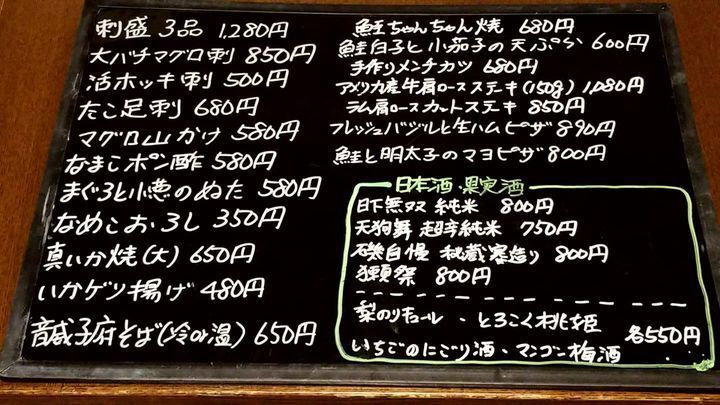 刺盛 3品 1,280円
大バチマグロ刺 850円
活ホッキ刺 500円
たこ足刺 680円
マグロ山かけ 580円
なまこポン酢 580円
まぐろと小葱のぬた 580円
なめこおろし 350円
真いか焼(大) 650円
いかゲソ揚げ 480円
音威子府そば(冷or温) 650円
鮭ちゃんちゃん焼 680円
鮭白子と小茄子の天ぷら 600円
手作りメンチカツ 680円
アメリカ産牛肩ロースステーキ(150g) 1,080円
ラム肩ロースカットステーキ 850円
フレッシュバジルと生ハムピザ 890円
鮭と明太子のマヨピザ 800円
日本酒・果実酒
日下無双 純米 800円
天狗舞 超辛純米 750円
磯自慢 秘蔵寒造り 800円
獺祭 800円
梨のリキュール・とろこく桃姫
各550円
いちごのにごり酒・マンゴー梅酒